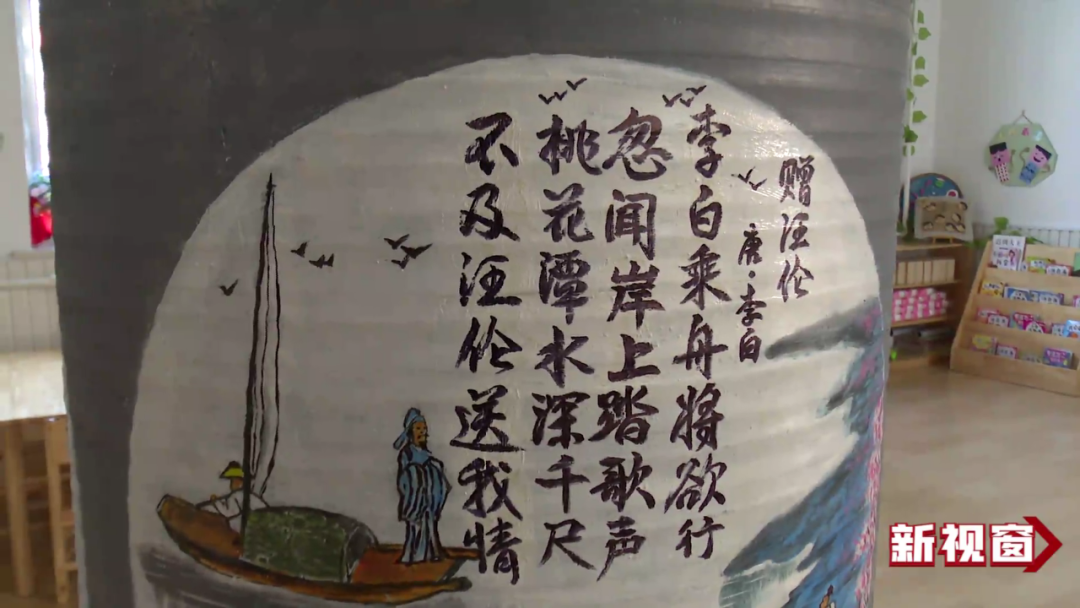 赠汪伦
唐·李白
李白乘舟将欲行
忽闻岸上踏歌声
桃花潭水深千尺
不及汪伦送我情
新视窗